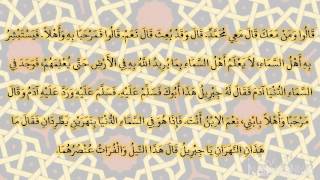 قَالُوا وَمَنْ مَعَكَ قَالَ مَعِي مُحَمَّدٌ. قَالَ وَقَدْ بُعِثَ قَالَ نَعَمْ. قَالُوا فَمَرْحَبًا بِهِ وَأَهْلاً. فَيَسْتَبْشِرُ
بِهِ أَهْلُ السَّمَاءِ، لاَ يَعْلَمُ أَهْلُ السَّمَاءِ بِمَا يُرِيدُ اللَّهُ بِهِ فِي الأَرْضِ حَتَّى يُعْلِمَهُمْ، فَوَجَدَ فِي
السَّمَاءِ الدُّنْيَا آدَمَ فَقَالَ لَهُ جِبْرِيلُ هَذَا أَبُوكَ فَسَلِّمْ عَلَيْهِ. فَسَلَّمَ عَلَيْهِ وَرَدَّ عَلَيْهِ آدَمُ وَقَالَ
مَرْحَبًا وَأَهْلاً بِابْنِي، نِعْمَ الاِبْنُ أَنْتَ. فَإِذَا هُوَ فِي السَّمَاءِ الدُّنْيَا بِنَهَرَيْنِ يَطَّرِدَانِ فَقَالَ مَا
هَذَانِ النَّهَرَانِ يَا جِبْرِيلُ قَالَ هَذَا النِّيلُ وَالْفُرَاتُ عُنْصُرُهُمَا.